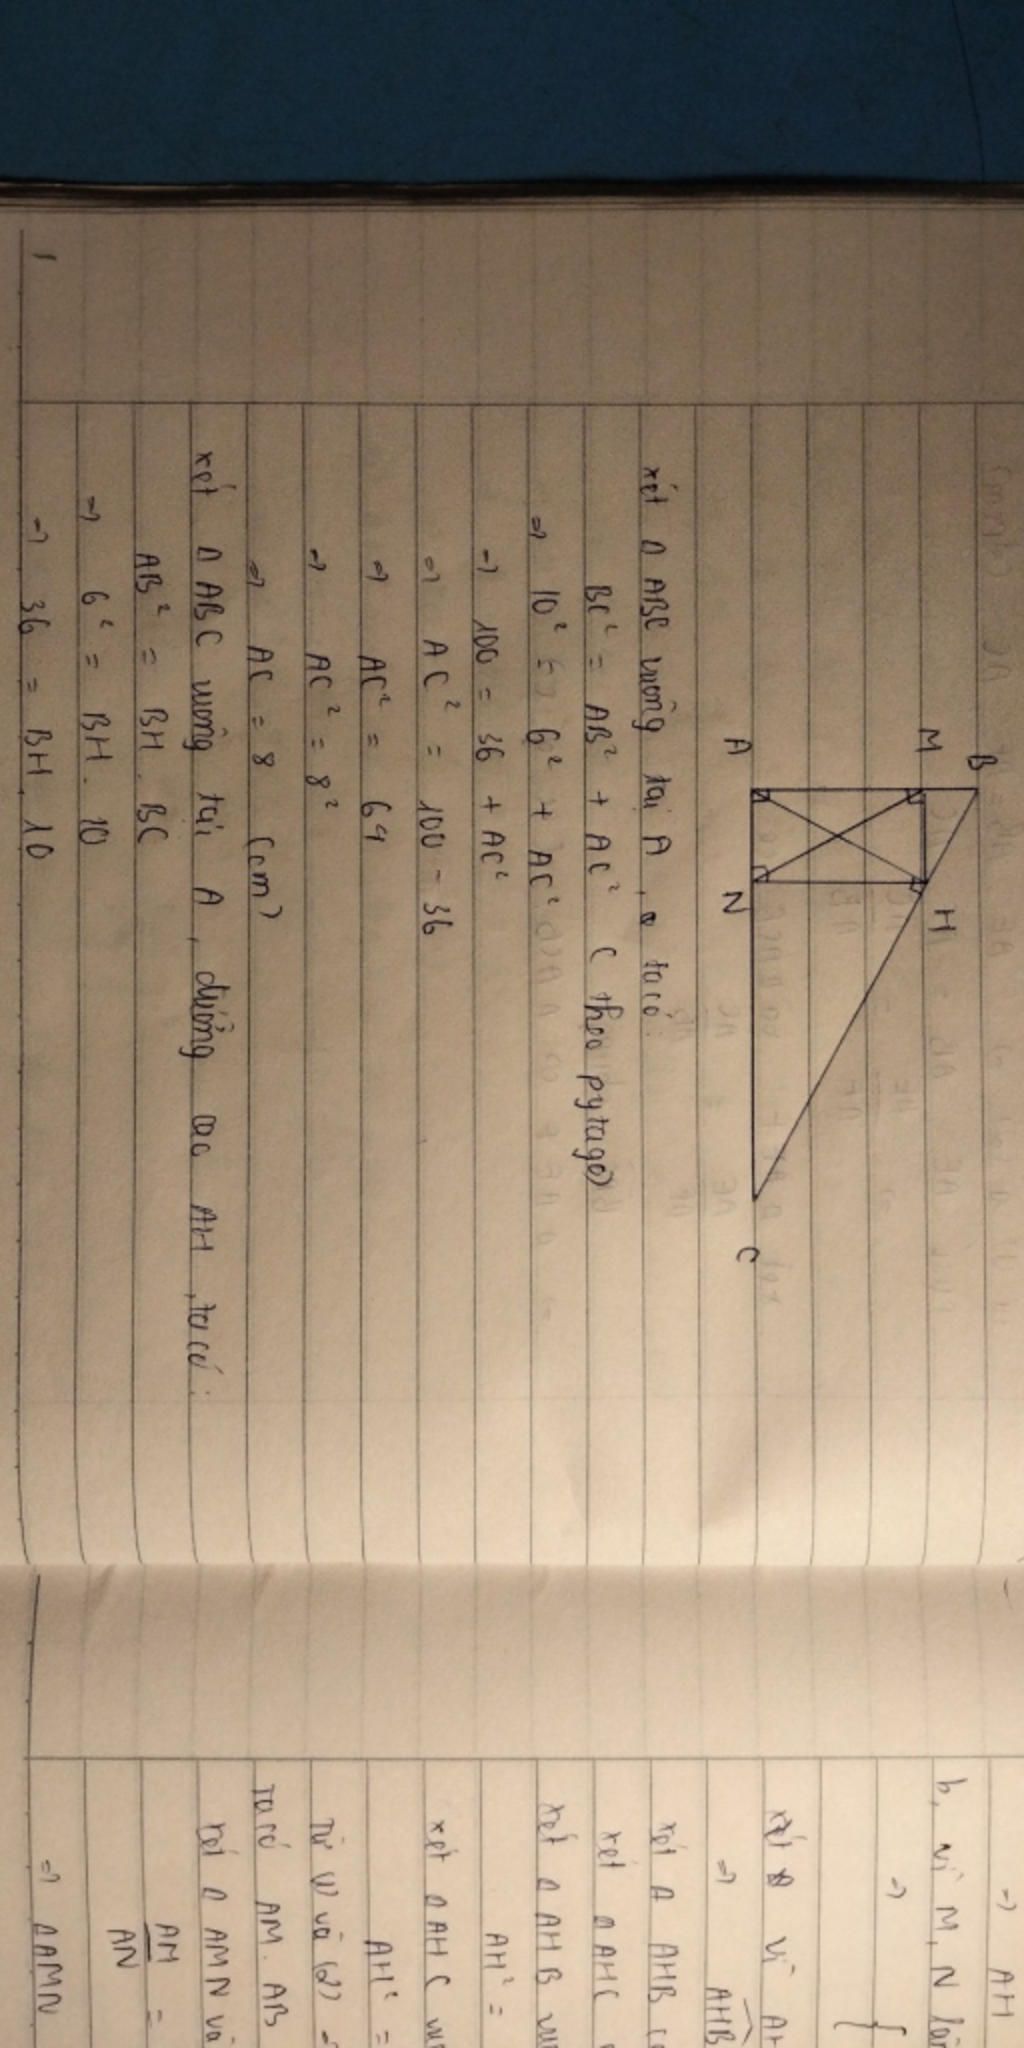 B
M
H
A
N
C
xét Δ ABC vuông tại A, ta có:
BC² = AB² + AC² ( theo pytago)
⇒ 10² = 6² + AC²
⇒ 100 = 36 + AC²
⇒ AC² = 100 - 36
⇒ AC² = 64
⇒ AC² = 8²
⇒ AC = 8 (cm)
xét Δ ABC vuông tại A, đường cao AH, ta có:
AB² = BH . BC
⇒ 6² = BH . 10
⇒ 36 = BH . 10
⇒ AH
b, vì M, N lần
⇒ {
xét vì AH
⇒ AHB
xét Δ AHB có
xét Δ AHC
xét Δ AHB
AH² =
xét Δ AHC
AH² =
Từ (1) và (2) ⇒
Ta có AM . AB
xét Δ AMN và
AM =
AN
⇒ Δ AMN